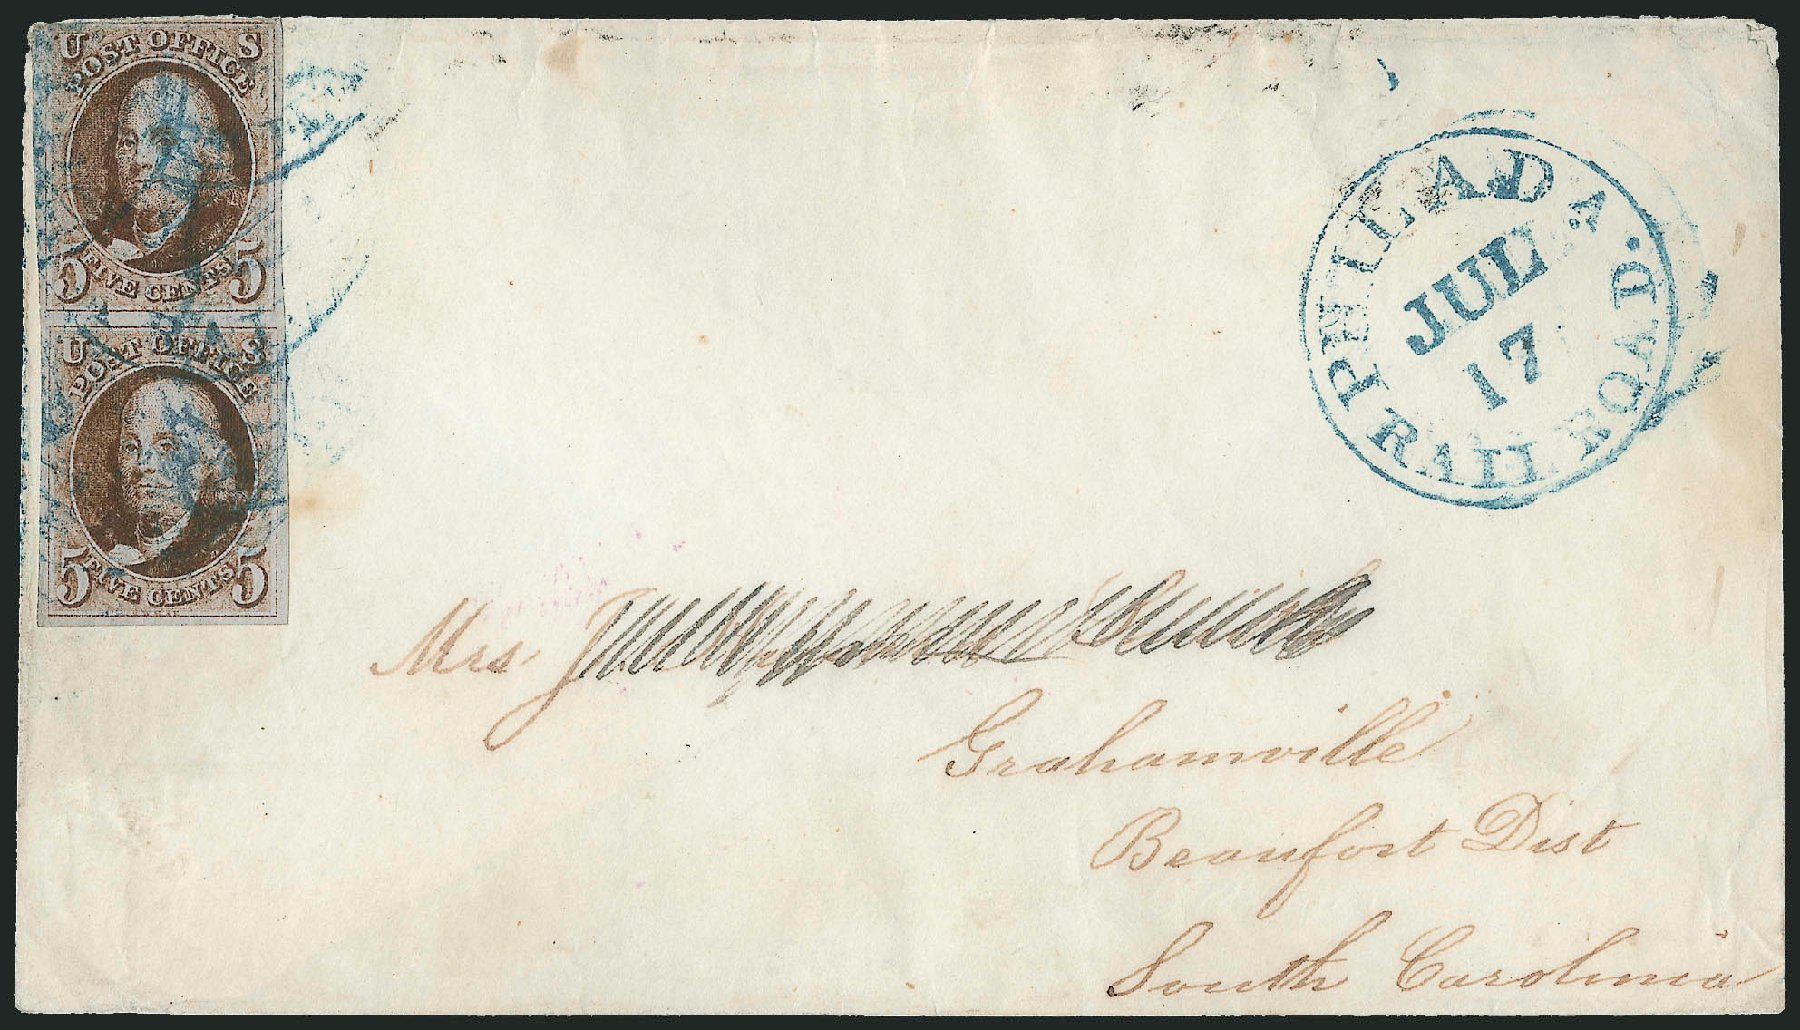 U S
POST OFFICE
5 FIVE CENTS 5
U S
POST OFFICE
5 FIVE CENTS 5
PHILADA
RAIL ROAD.
JUL
17
Mrs J
Grahamville
Beaufort Dist
South Carolina